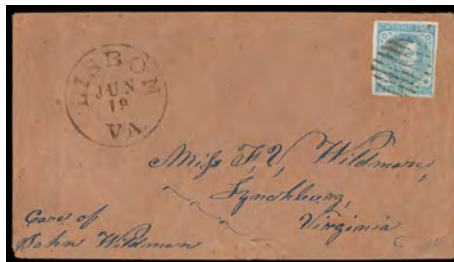 LISBON
JUN
19
VA
Miss F, V, Wildman,
Lynchburg,
Virginia
Care of
John Wildman